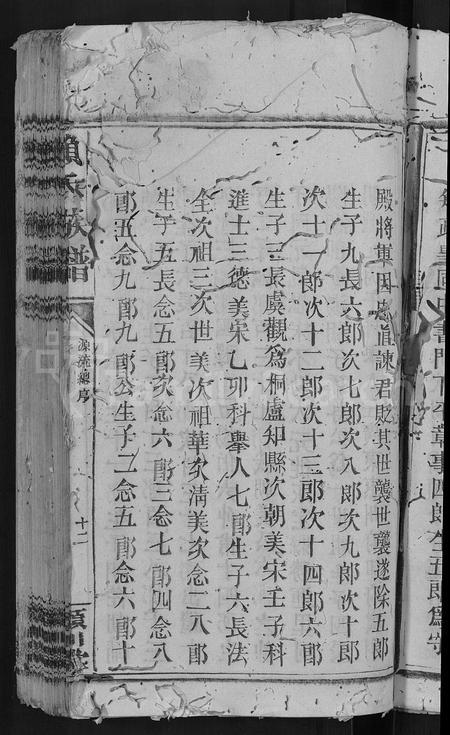 殿將軍因處直諫君貶其世襲世襲遂除五郎
生子九長六郎次七郎次八郎次九郎次十郎
次十一郎次十二郎次十三郎次十四郎六郎
生子三長虞觀爲桐盧知縣次朝美宋壬子科
進士三德美宋乙卯科舉人七郎生子六長法
全次祖三次世美次祖華次清美次念二八郎
生子五長念五郎次念六郎三念七郎四念八
郎五念九郎九郎公生子二念五郎念六郎十
賴氏族譜
源流總序
十二